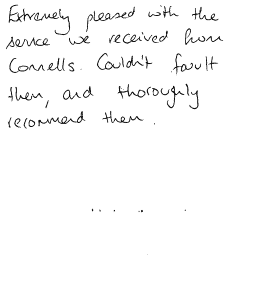 Extremely pleased with the
service we received from
Connells. Couldn't fault
them, and thoroughly
recommend them.